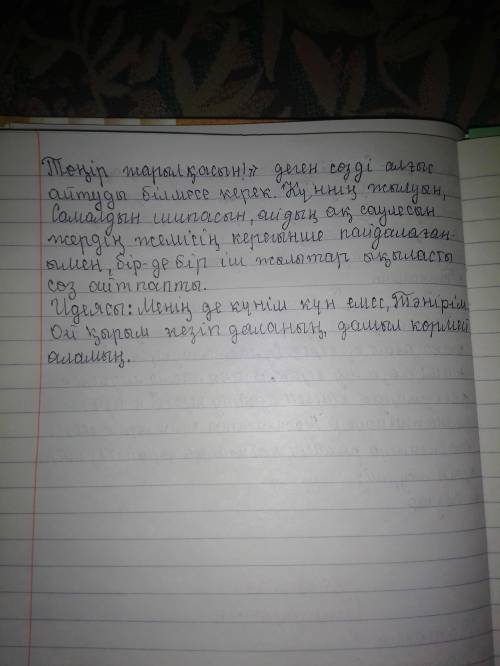 Тәңір жарылқасын!» деген сөзді алғыс
айтуды білмесе керек. Күннің жылуын,
Самалдын шипасын, айдың ақ саулесын
жердің жемісің керегынше пайдалаған-
ымен, бір-де бір іш жылытар ықыласты
сөз айтпапты.
Идеясы: Менің де күнім күн емес, Тәнірім.
Ой қырым кезіп даланың, дамыл көрмей
аламын.